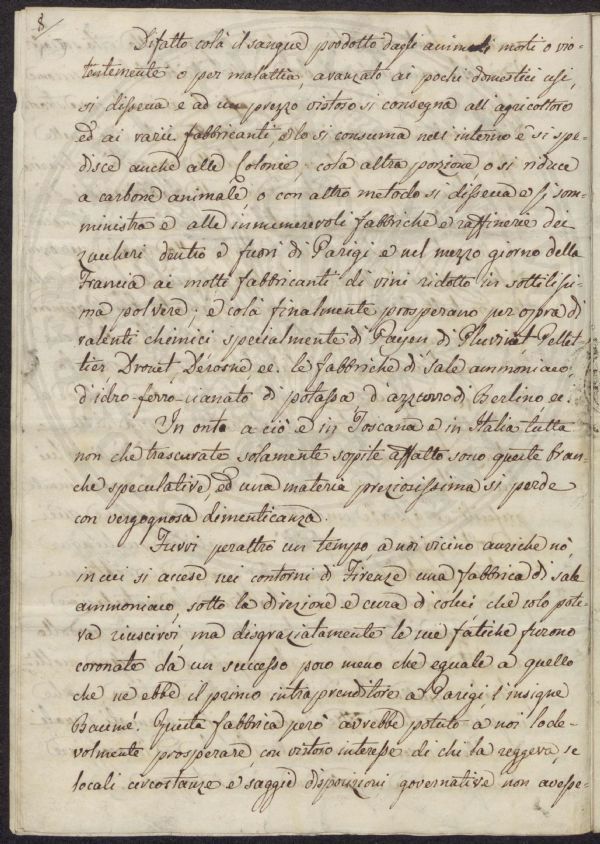 8
Difatto colà il sangue prodotto dagli animali morti o vio-
lentemente o per malattia, avanzato ai pochi domestici usi,
si dissecca e ad un prezzo vistoso si consegna all'agricoltore
ed ai varii fabbricanti, e lo si consuma nell'interno e si spe-
disce anche alle Colonie; colà altra porzione, o si riduce
a carbone animale, o con altro metodo si dissecca e si som-
ministra e alle innumerevoli fabbriche e raffinerie dei
zuccheri dentro e fuori di Parigi e nel mezzo giorno della
Francia ai molti fabbricanti di vini ridotto in sottilissi-
ma polvere; e colà finalmente prosperano per opra di
valenti chimici specialmente di Payen di Pluvinet Pellet-
tier, Drouet, Derosne ec. le fabbriche di sale ammoniaco,
d'idro-ferro-cianato di potassa, d'azzurro di Berlino ec.
In onta a ciò e in Toscana e in Italia tutta
non che trascurate solamente sopite affatto sono queste bran-
che speculative, ed una materia preziosissima si perde
con vergognosa dimenticanza.
Fuvvi peraltro un tempo, a noi vicino anziche nò,
in cui si accese nei contorni di Firenze una fabbrica di sale
ammoniaco, sotto la direzione e cura di colui che solo pote-
va riuscirvi ma disgraziatamente le sue fatiche furono
coronate da un successo poco meno che eguale a quello
che ne ebbe il primo intraprenditore a Parigi, l'insigne
Baumé. Questa fabbrica però avrebbe potuto a noi lode-
volmente prosperare, con vistoso interesse di chi la reggeva, se
locali circostanze e saggie disposizioni governative non avesse-